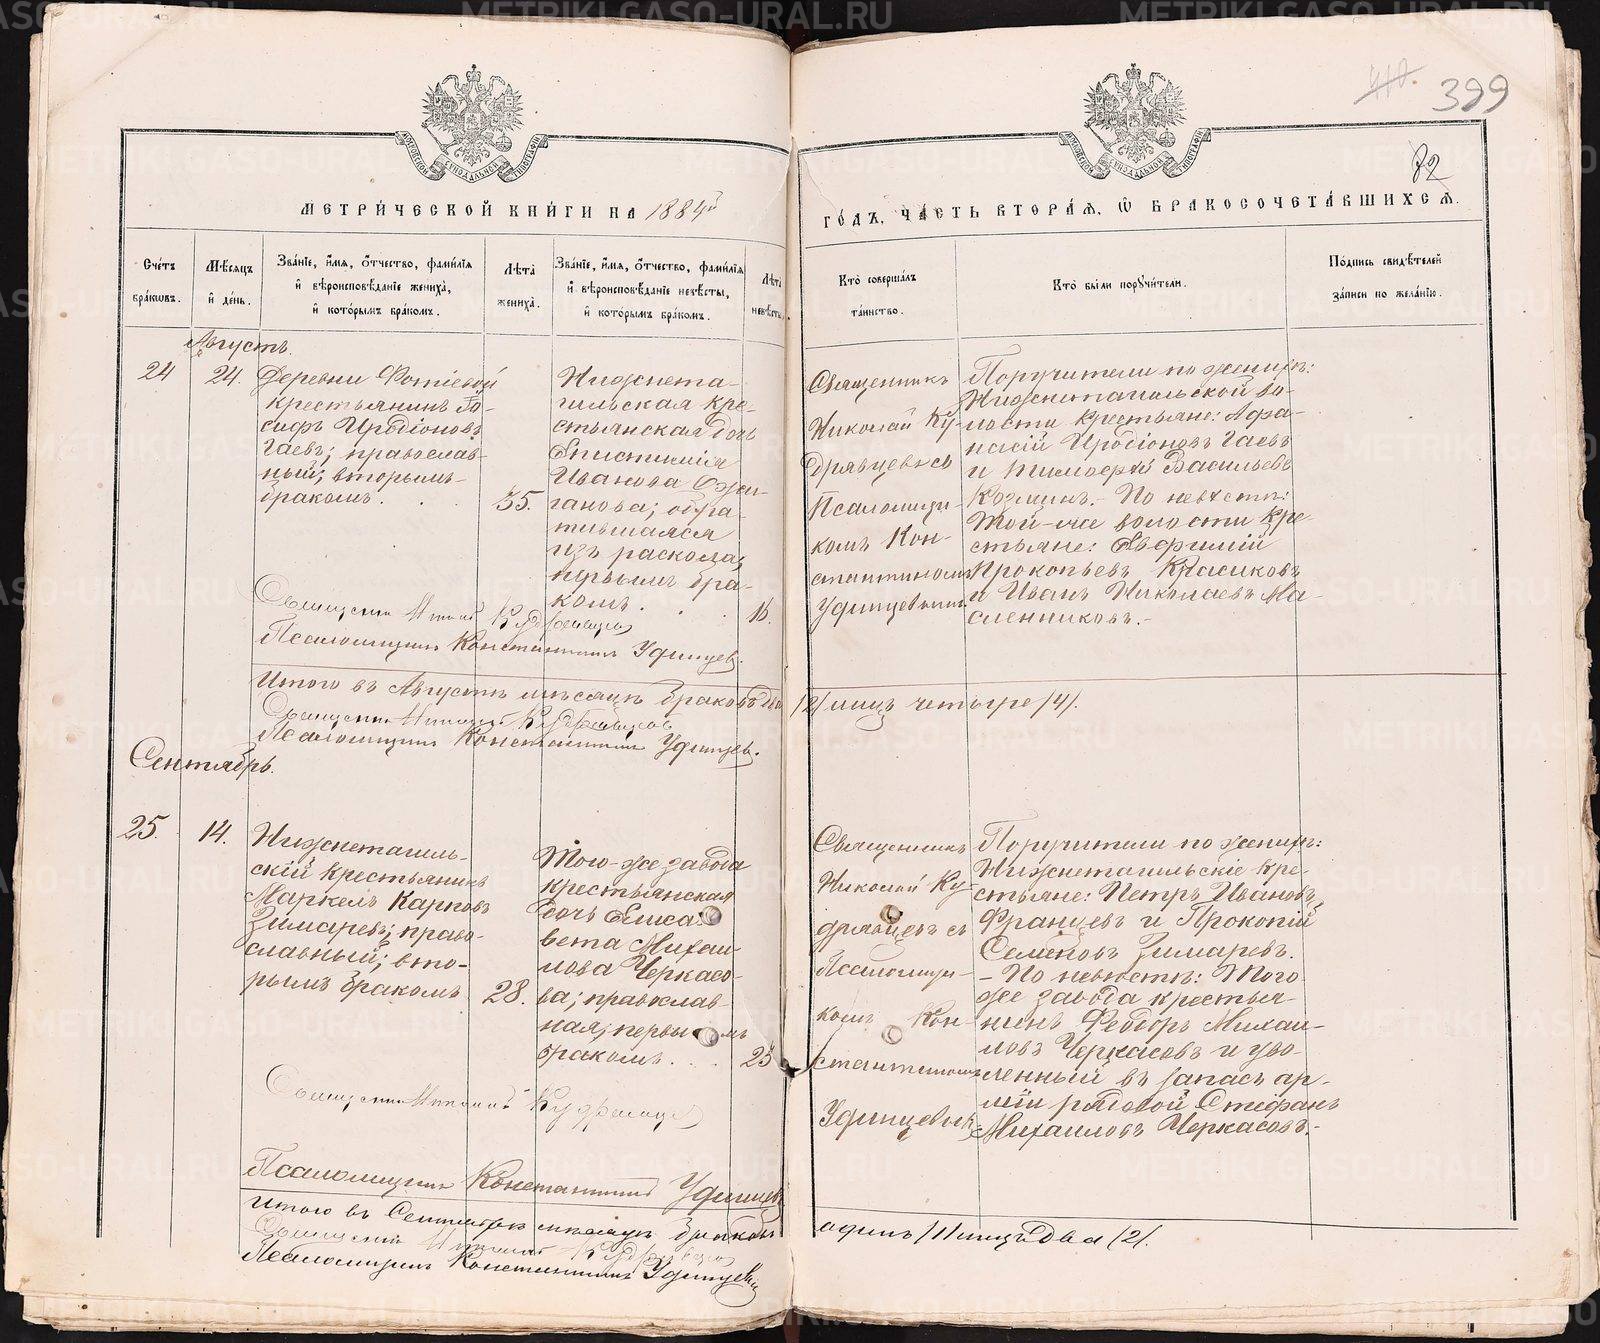 410.
399
32
МЕТРИЧЕСКОЙ КНИГИ НА 1884й
ГОДЪ, ЧАСТЬ ВТОРАЯ, Ѡ БРАКОСОЧЕТАВШИХСЯ.
Счетъ браковъ.
Мѣсяцъ и день.
Званіе, имя, отчество, фамилія
и вѣроисповѣданіе жениха,
и которымъ бракомъ.
Лѣта жениха.
Званіе, имя, отчество, фамилія
и вѣроисповѣданіе невѣсты,
и которымъ бракомъ.
Лѣта невѣсты
Кто совершалъ
таинство.
Кто были поручители.
Подпись свидѣтелей
записи по желанію.
Августъ.
24
24.
Деревни Фотѣевой
крестьянинъ Іо-
сифъ Иродіоновъ
Гаевъ; православ-
ный; вторымъ
бракомъ.
35.
Нижнета-
гильская кре-
стьянская дочь
Епистимія
Иванова
ганова; обра-
тившаяся
изъ раскола;
первымъ бра-
комъ.
16.
Священникъ
Николай Ку-
дрявцевъ съ
Псаломщи-
комъ Кон-
стантиномъ
Удинцевымъ
Поручители по женихѣ:
Нижнетагильской во-
лости крестьяне: Афа-
насій Иродіоновъ Гаевъ
и Тимоѳей Васильевъ
Козминъ. - По невѣстѣ:
Той-же волости кре-
стьяне: Евфимій
Прокопьевъ Красиковъ
и Иванъ Николаевъ Ма-
сленниковъ.-
Священникъ Николай Кудрявцевъ
Псаломщикъ Константинъ Удинцевъ.
Итого въ Августѣ мѣсяцѣ браковъ два
/2/ лицъ четыре /4/.
Священникъ Николай Кудрявцевъ
Псаломщикъ Константинъ Удинцевъ.
Сентябрь.
25.
14.
Нижнетагиль-
скій крестьянинъ
Маркелъ Карповъ
Зимаревъ; право-
славный; вто-
рымъ бракомъ
28.
Того-же завода
крестьянская
дочь Елиса-
вета Михаи-
лова Черкасо-
ва; православ-
ная; первымъ
бракомъ.
25
Священникъ
Николай Ку-
дрявцевъ съ
Псаломщи-
комъ Кон-
стантиномъ
Удинцевымъ
Поручители по женихѣ:
Нижнетагильскіе кре-
стьяне: Петръ Ивановъ
Францевъ и Прокопій
Семеновъ Зимаревъ.
- По невѣстѣ: Того
же завода крестья-
нинъ Ѳедоръ Михаи-
ловъ Черкасовъ и уво-
ленный въ запасъ ар-
міи рядовой Стефанъ
Михаиловъ Черкасовъ.-
Священникъ Николай Кудрявцевъ
Псаломщикъ Константинъ Удинцевъ
Итого въ Сентябрѣ мѣсяцѣ браковъ
одинъ /1/ лицъ два /2/.
Священникъ Николай Кудрявцевъ
Псаломщикъ Константинъ Удинцевъ
METRIKI.GASO-URAL.RU